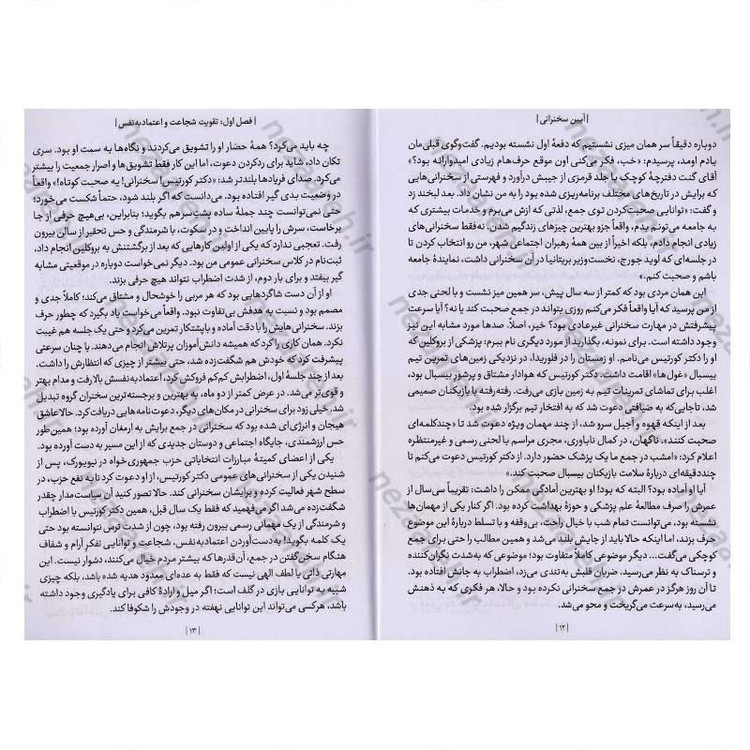 | آیین سخنرانی |
دوباره دقیقاً سر همان میزی نشستیم که دفعهٔ اول نشسته بودیم. گفت‌وگوی قبلی‌مان
یادم اومد، پرسیدم: «خب، فکر می‌کنی اون موقع حرف‌هام زیادی امیدوارانه بود؟»
آقای گنت دفترچهٔ کوچک با جلد قرمزی از جیبش درآورد و فهرستی از سخنرانی‌هایی
که برایش در تاریخ‌های مختلف برنامه‌ریزی شده بود را به من نشان داد. بعد لبخند زد
و گفت: «توانایی صحبت‌کردن توی جمع، لذتی که ازش می‌برم و خدمات بیشتری که
به جامعه می‌تونم بدم، واقعاً جزو بهترین چیزهای زندگیم شدن. نه‌فقط سخنرانی‌های
زیادی انجام دادم، بلکه اخیراً از بین همهٔ رهبران اجتماعی شهر، من رو انتخاب کردن تا
در جلسه‌ای که لوید جورج، نخست‌وزیر بریتانیا در آن سخنرانی داشت، نمایندهٔ جامعه
باشم و صحبت کنم.»
این همان مردی بود که کمتر از سه سال پیش، سر همین میز نشست و با لحنی جدی
از من پرسید که آیا واقعاً فکر می‌کنم روزی بتواند در جمع صحبت کند یا نه؟ آیا سرعت
پیشرفتش در مهارت سخنرانی غیرعادی بود؟ خیر، اصلاً. صدها مورد مشابه این نیز
وجود داشته است. برای نمونه، بگذارید از مورد دیگری نام ببرم: پزشکی از بروکلین که
او را دکتر کورتیس می‌نامم. او زمستان را در فلوریدا، در نزدیکی زمین‌های تمرین تیم
بیسبال «غول‌ها» اقامت داشت. دکتر کورتیس که هوادار مشتاق و پرشور بیسبال بود،
اغلب برای تماشای تمرینات تیم به زمین بازی می‌رفت. رفته‌رفته با بازیکنان صمیمی
شد، تاجایی‌که به ضیافتی دعوت شد که به افتخار تیم برگزار شده بود.
بعد از اینکه قهوه و آجیل سرو شد، از چند مهمان ویژه دعوت شد تا «چندکلمه‌ای
صحبت کنند». ناگهان، در کمال ناباوری، مجری مراسم با لحنی رسمی و غیرمنتظره
اعلام کرد: «امشب در جمع ما یک پزشک حضور دارد. از دکتر کورتیس دعوت می‌کنم تا
چنددقیقه‌ای دربارهٔ سلامت بازیکنان بیسبال صحبت کند.»
آیا او آماده بود؟ البته که بود! او بهترین آمادگی ممکن را داشت: تقریباً سی‌سال از
عمرش را صرف مطالعهٔ علم پزشکی و حوزهٔ بهداشت کرده بود. اگر کنار یکی از مهمان‌ها
نشسته بود، می‌توانست تمام شب با خیال راحت، بی‌وقفه و با تسلط دربارهٔ این موضوع
حرف بزند، اما اینکه حالا باید از جایش بلند می‌شد و همین مطالب را حتی برای جمع
کوچکی می‌گفت... دیگر موضوعی کاملاً متفاوت بود؛ موضوعی که به‌شدت نگران‌کننده
و ترسناک به نظر می‌رسید. ضربان قلبش به‌تندی می‌زد، اضطراب به جانش افتاده بود.
تا آن روز هرگز در عمرش در جمع سخنرانی نکرده بود و حالا، هر فکری که به ذهنش
می‌رسید، به‌سرعت می‌گریخت و محو می‌شد.
| ۱۲ |
| فصل اول: تقویت شجاعت و اعتمادبه‌نفس |
چه باید می‌کرد؟ همهٔ حضار او را تشویق می‌کردند و نگاه‌ها به سمت او بود. سری
تکان داد، شاید برای ردکردن دعوت، اما این کار فقط تشویق‌ها و اصرار جمعیت را بیشتر
می‌کرد. صدای فریادها بلندتر شد: «دکتر کورتیس! سخنرانی! یه صحبت کوتاه!» واقعاً
در وضعیت بدی گیر افتاده بود. می‌دانست که اگر بلند شود، حتماً شکست می‌خورد؛
حتی نمی‌توانست چند جملهٔ ساده پشت‌سرهم بگوید؛ بنابراین، بی‌هیچ حرفی از جا
برخاست، سرش را پایین انداخت و در سکوت، با شرمندگی و حس تحقیر از سالن بیرون
رفت. تعجبی ندارد که یکی از اولین کارهایی که بعد از برگشتنش به بروکلین انجام داد،
ثبت‌نام در کلاس سخنرانی عمومی من بود. دیگر نمی‌خواست دوباره در موقعیتی مشابه
گیر بیفتد و برای بار دوم، از شدت اضطراب نتواند هیچ حرفی بزند.
او از آن دست شاگردهایی بود که هر مربی را خوشحال و مشتاق می‌کند؛ کاملاً جدی و
مصمم بود و نسبت به هدفش بی‌تفاوت نبود. واقعاً می‌خواست یاد بگیرد که چطور حرف
بزند. سخنرانی‌هایش را با دقت آماده و باپشتکار تمرین می‌کرد و حتی یک جلسه هم غیبت
نکرد. همان کاری را کرد که همیشه دانش‌آموزان پرتلاش انجام می‌دهند. با چنان سرعتی
پیشرفت کرد که خودش هم شگفت‌زده شد، حتی بیشتر از چیزی که انتظارش را داشت.
بعد از چند جلسهٔ اول، اضطرابش کم‌کم فروکش کرد، اعتمادبه‌نفسش بالا رفت و مدام بهتر
و قوی‌تر می‌شد. در عرض کمتر از دو ماه، به بهترین و برجسته‌ترین سخنران گروه تبدیل
شد. خیلی زود برای سخنرانی در مکان‌های دیگر، دعوت‌نامه‌هایی دریافت کرد. حالا عاشق
هیجان و انرژی‌ای شده بود که سخنرانی در جمع برایش به ارمغان آورده بود؛ همین‌طور
حس ارزشمندی، جایگاه اجتماعی و دوستان جدیدی که از این مسیر به دست آورده بود.
یکی از اعضای کمیتهٔ مبارزات انتخاباتی حزب جمهوری‌خواه در نیویورک، پس از
شنیدن یکی از سخنرانی‌های عمومی دکتر کورتیس، از او دعوت کرد تا به نفع حزب، در
سطح شهر فعالیت کرده و برایشان سخنرانی کند. حالا تصور کنید آن سیاست‌مدار چقدر
شگفت‌زده می‌شد اگر می‌فهمید که فقط یک سال قبل، همین دکتر کورتیس با اضطراب
و شرمندگی از یک مهمانی رسمی بیرون رفته بود، چون از شدت ترس نتوانسته بود حتی
یک کلمه بگوید! به‌دست‌آوردن اعتمادبه‌نفس، شجاعت و توانایی تفکر آرام و شفاف
هنگام سخن‌گفتن در جمع، آن‌قدرها که بیشتر مردم خیال می‌کنند، دشوار نیست. این
مهارتی ذاتی یا لطف الهی نیست که فقط به عده‌ای معدود هدیه شده باشد، بلکه چیزی
شبیه به توانایی بازی در گلف است؛ اگر میل و ارادهٔ کافی برای یادگیری وجود داشته
باشد، هرکسی می‌تواند این توانایی نهفته در وجودش را شکوفا کند.
| ۱۳ |
nezameh.ir